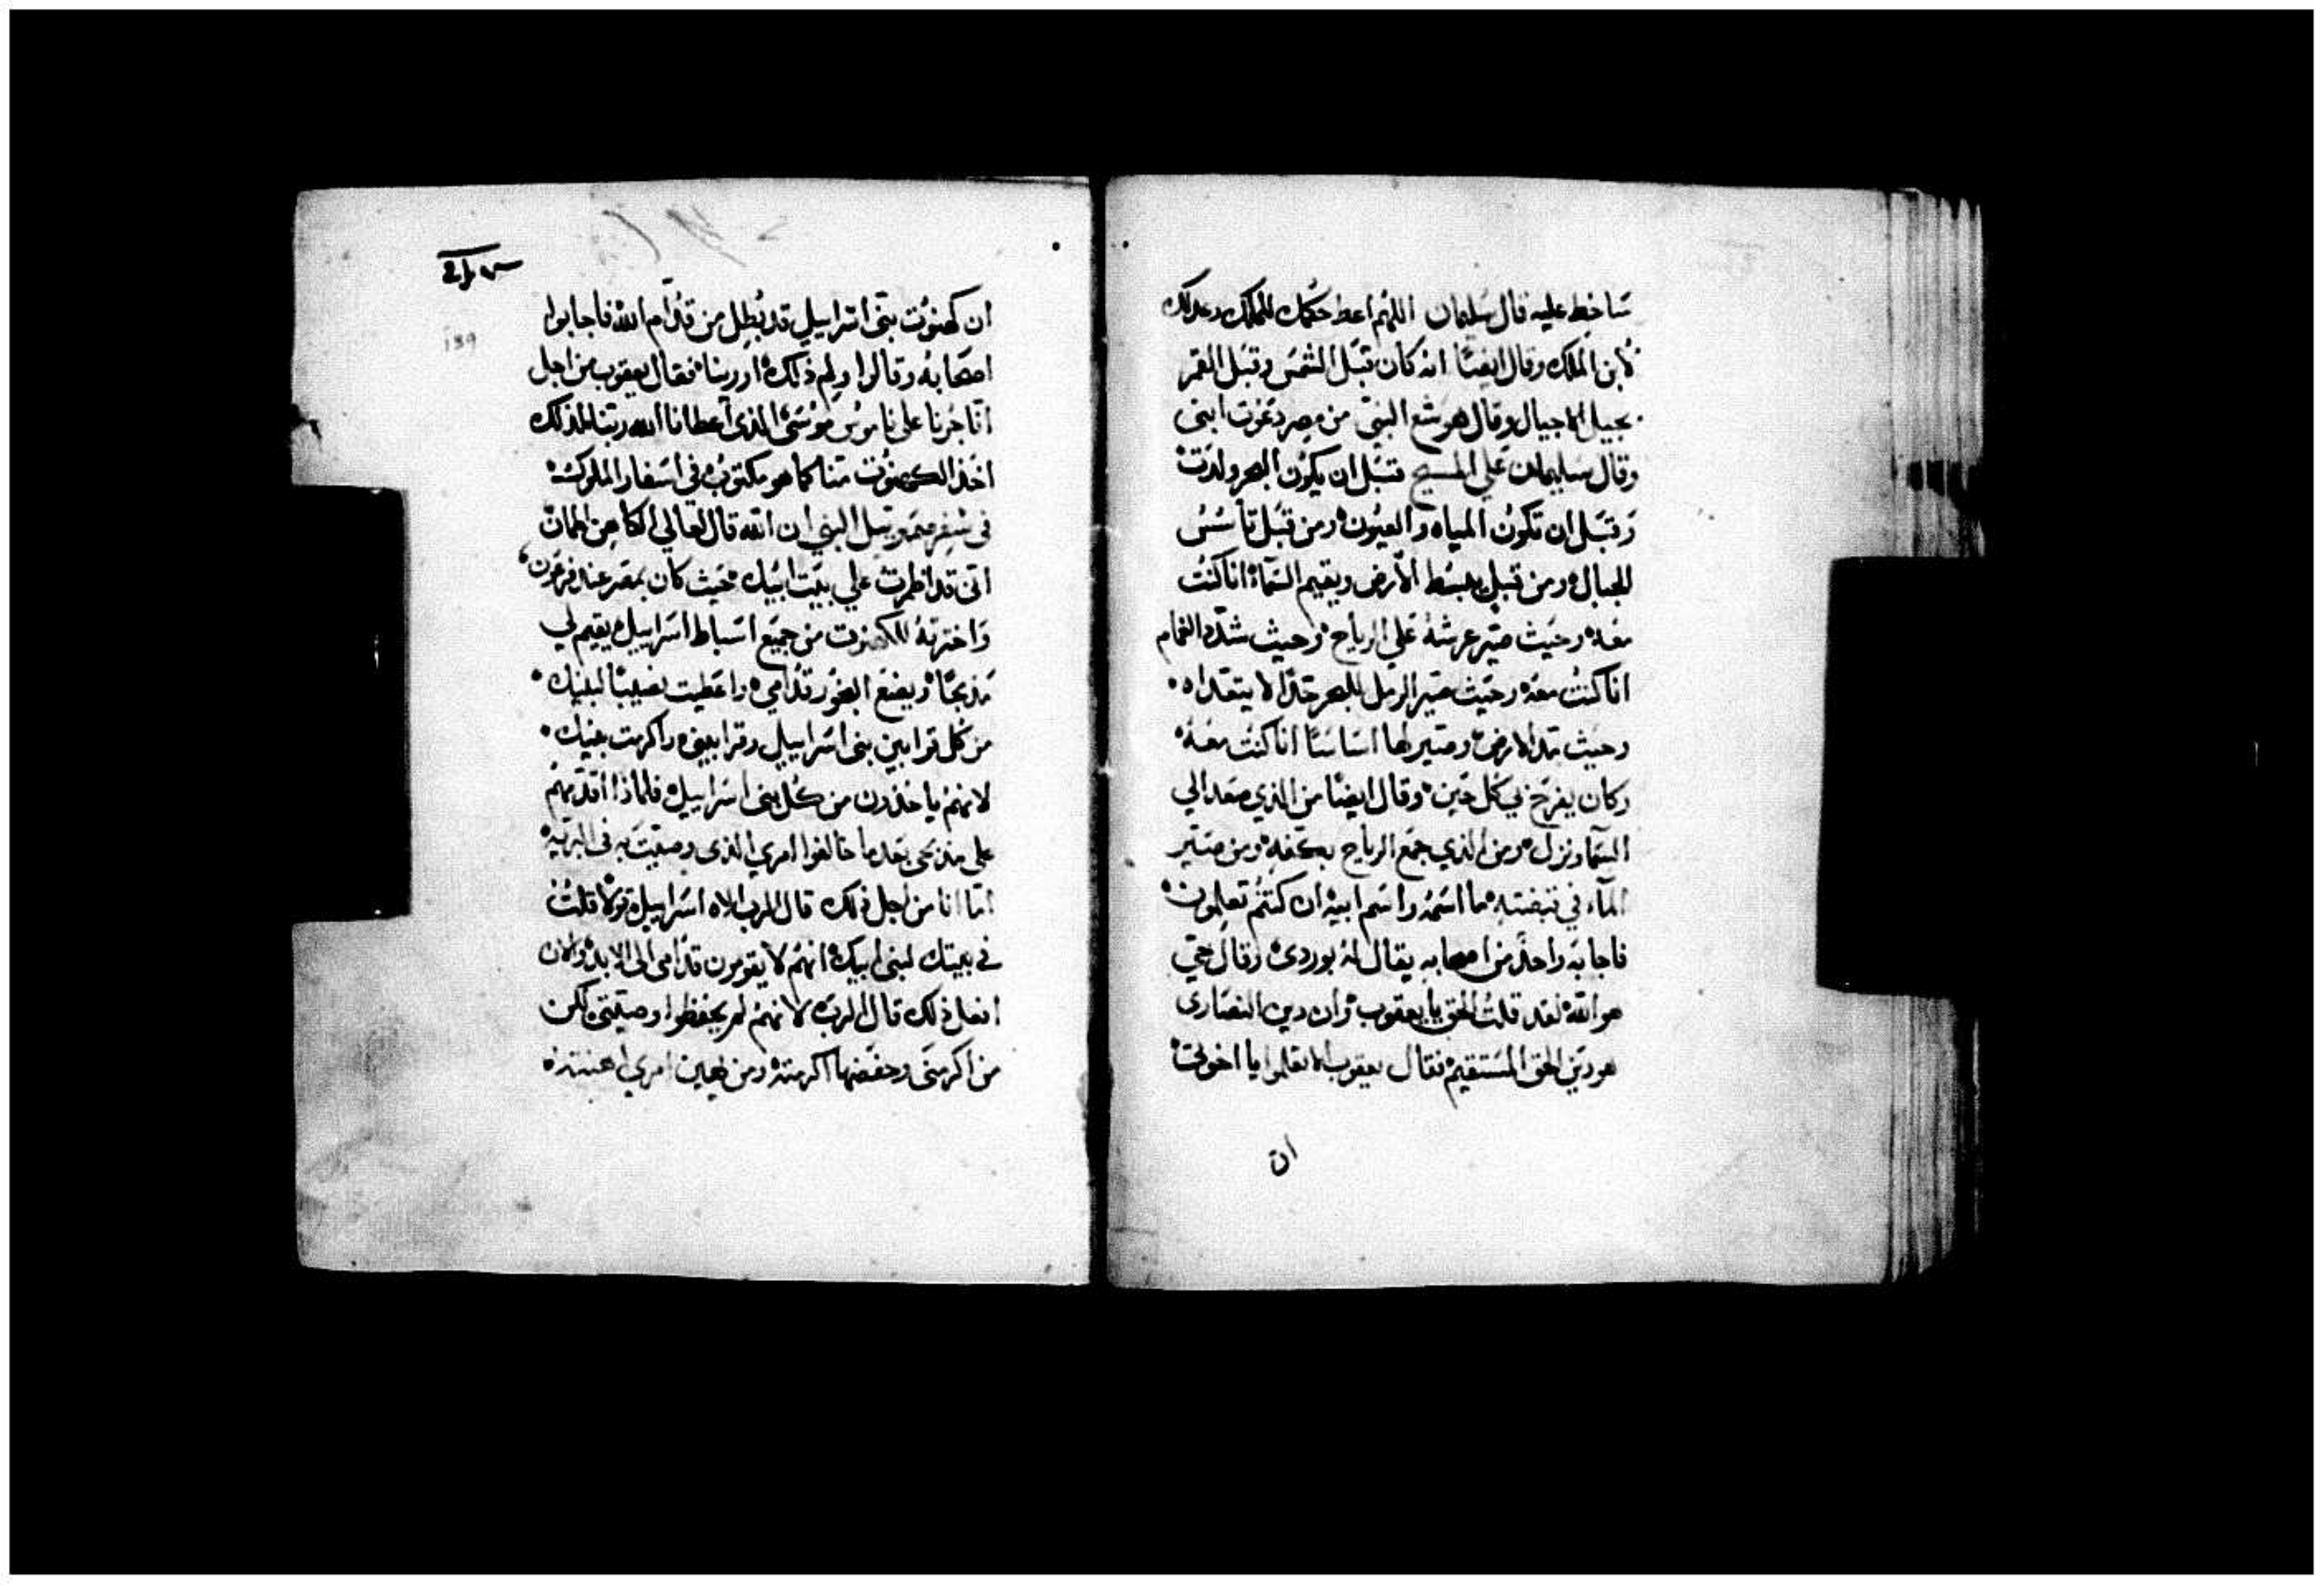 ساخط عليه قال سليمان اللهم اعط حكمك للملك وعدلك
لابن الملك وقال ايضًا انه كان قبل الشمس وقبل القمر
بجيل الاجيال وقال هوشع النبي من مصر دعوت ابني
وقال سليمان علي المسيح قبل ان يكون البحر ولدت
وقبل ان تكون المياه والعيون ومن قبل تأسس
الجبال ومن قبل يبسط الأرض ويقيم السماء انا كنت
معه وحيث صير عرشه علي الرياح وحيث شدد الغمام
انا كنت معه وحيث صير الرمل للبحر حدًا لا يتعداه
وحيث مد الارض وصير لها اساسًا انا كنت معه
وكان يفرح بي كل حين وقال ايضًا من الذي صعد الي
السما ونزل ومن الذي جمع الرياح بكفه ومن صير
الماء في قبضته ما اسمه واسم ابيه ان كنتم تعلمون
فاجابه واحد من اصحابه يقال له بوردي وقال حي
هو الله لقد قلت الحق يا يعقوب وان دين النصارى
هو دين الحق المستقيم فقال يعقوب الا تعلموا يا اخوتي
ان
189
ان كهنوت بني اسراييل قد بطل من قدام الله فاجابوا
اصحابه وقالوا ولم ذلك اورينا فقال يعقوب من اجل
انا جرنا على ناموس موسى الذي اعطانا الله ربنا لذلك
اخذ الكهنوت منا كما هو مكتوب في اسفار الملوك
في سفر صمويل النبي ان الله قال لعالي الكاهن
اني قد اظهرت علي بيت ابيك حيث كان بمصر عند فرعون
واخترته للكهنوت من جميع اسباط اسراييل يقيم لي
مذبحًا ويضع البخور قدامي واعطيت نصيبًا لبنيك
من كل قرابين بني اسراييل وقرابيني واكرمت بنيك
لانهم ياخذون من كل بني اسراييل فلماذا اقدمهم
على مذبحي بعد ما خالفوا امري الذي وصيت به في البرية
اما انا من اجل ذلك قال الرب الاه اسراييل قولًا قلت
في بيتك لبني ابيك انهم لا يقومون قدامي الى الابد والان
افعل ذلك قال الرب لانهم لم يحفظوا وصيتي لكن
من اكرمني وحفضها اكرمته ومن يهين امري اهنته